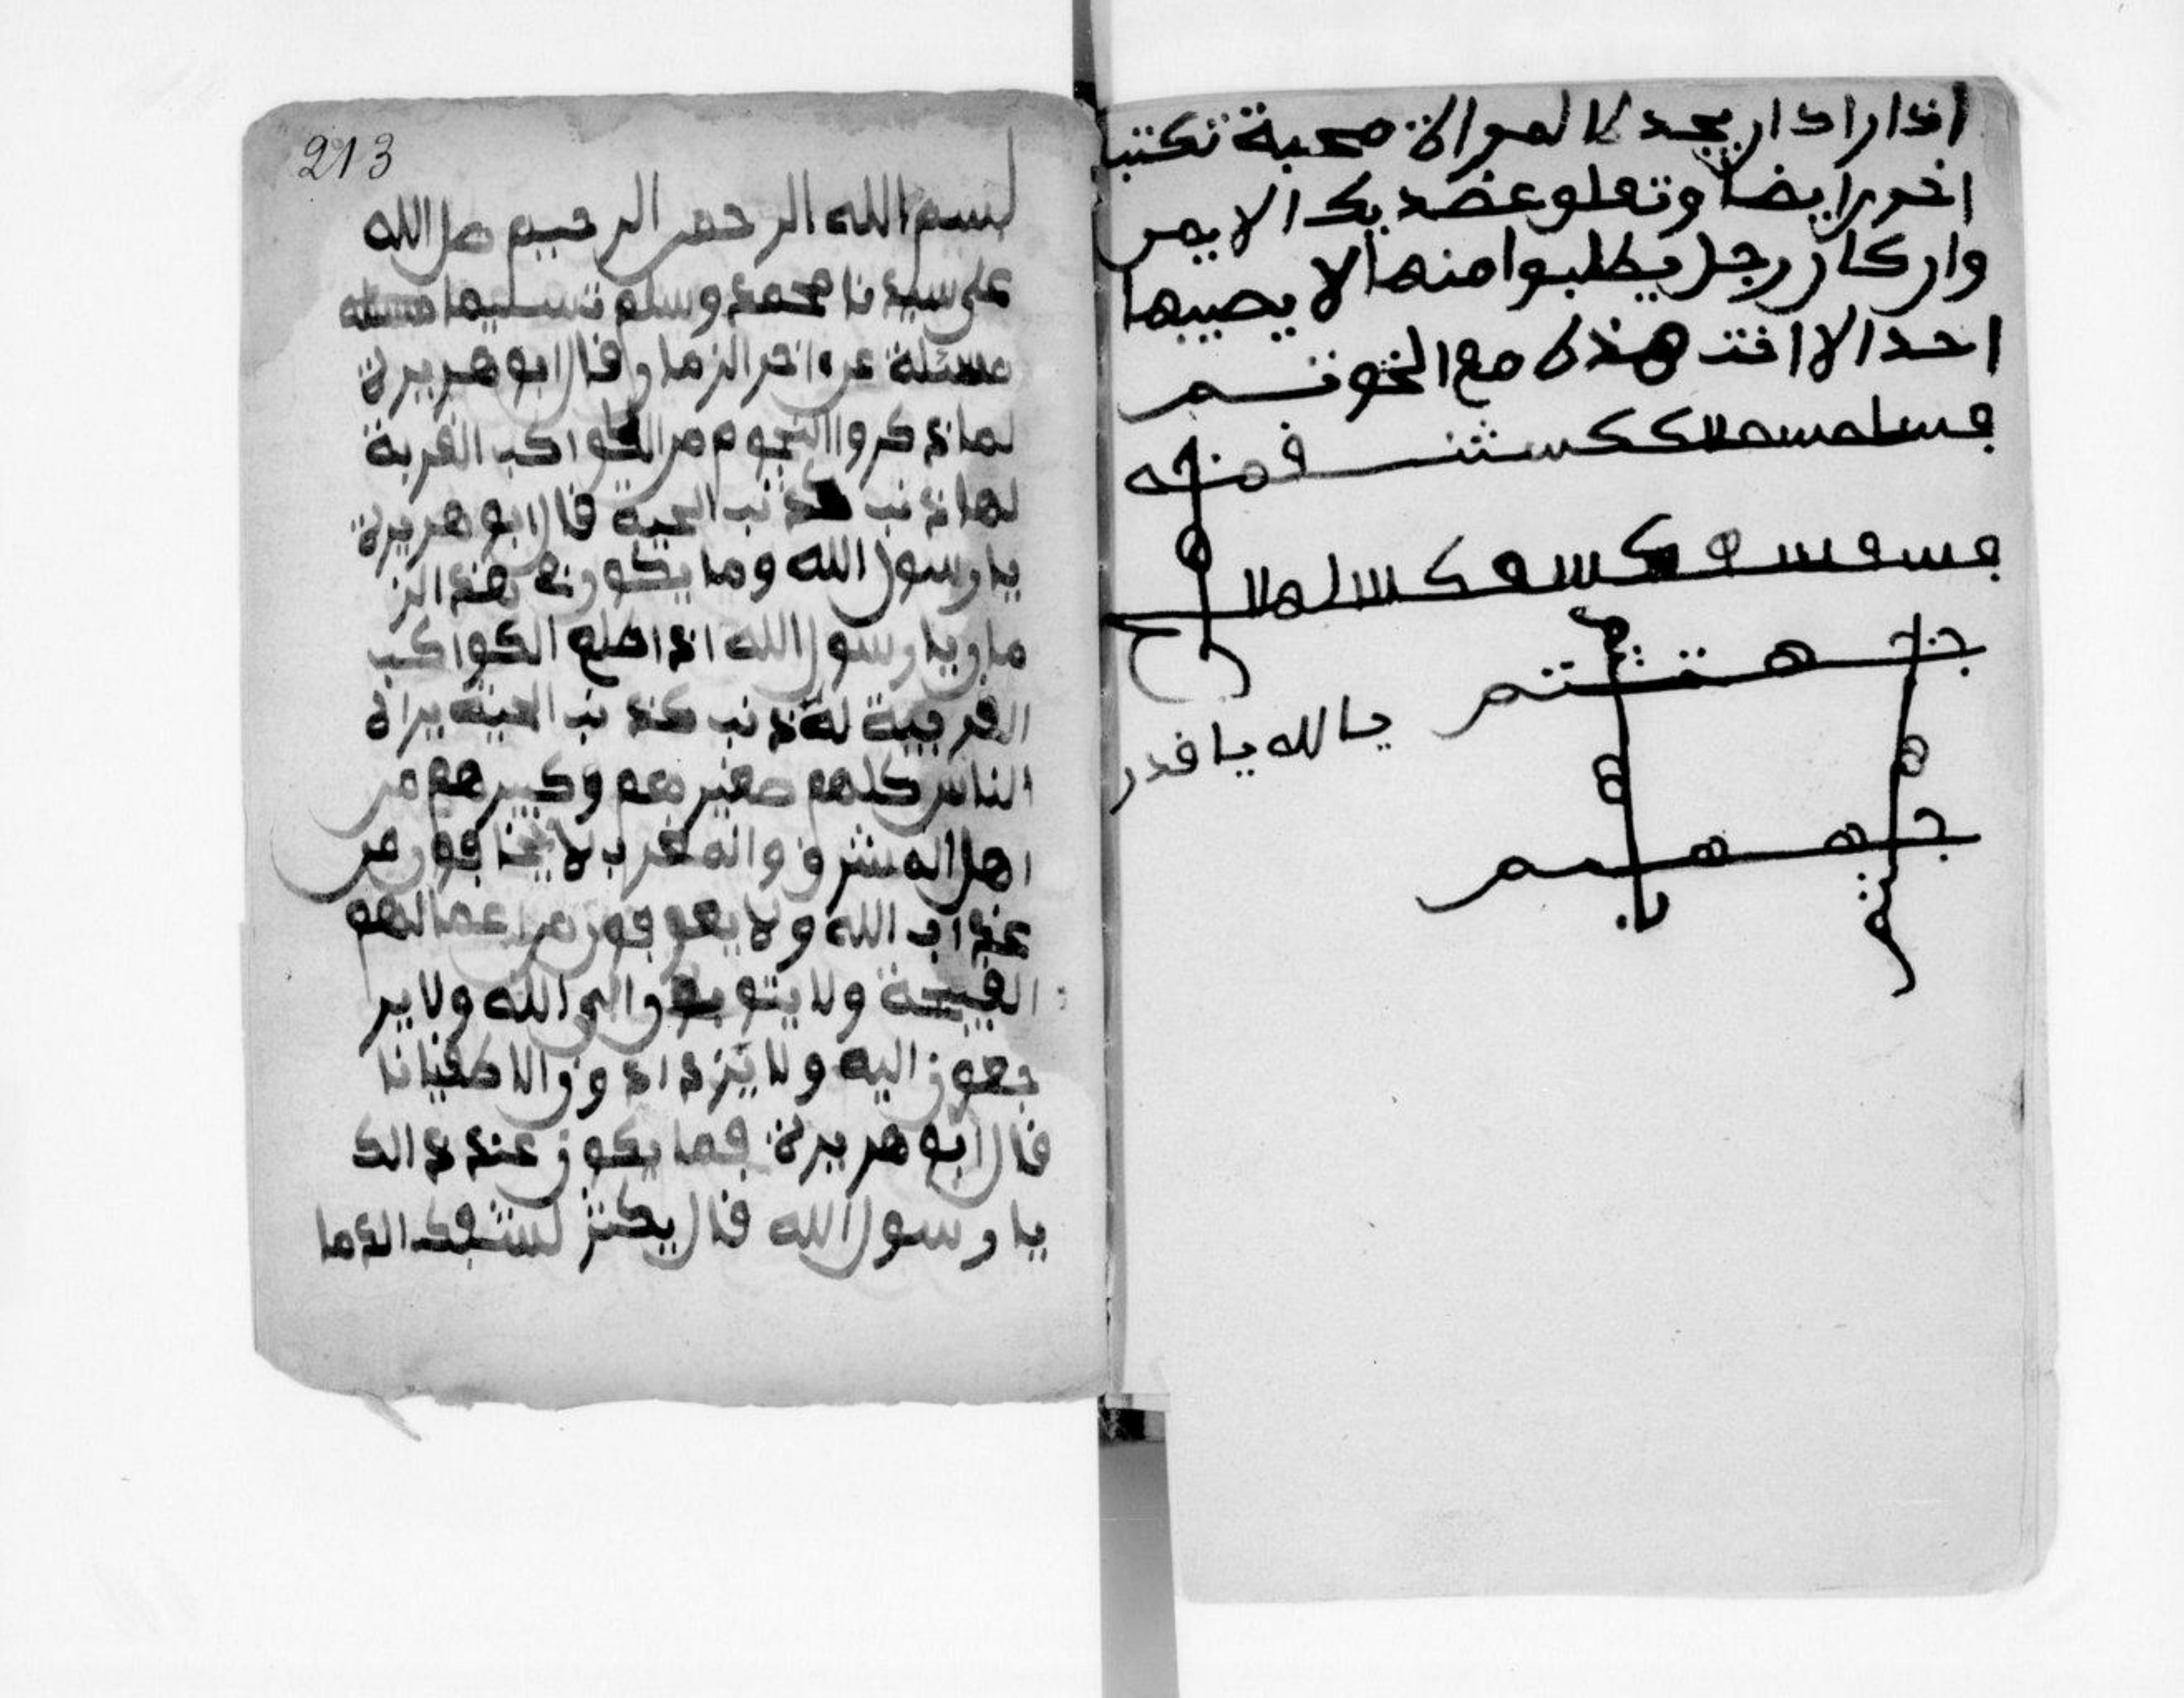 اذا اراد ان يجد لا لمراة محبة تكتب
اخر ايضا وتعلو عضد بك الايمن
وان كان رجل يطلبوا منها لا يصيبها
احد الا انت هذه مع الخوتم
يا لله يا قدر
213
بسم الله الرحمن الرحيم صل الله
على سيدنا محمد وسلم تسليما
مسئلة عن اخر الزمان قال ابو هريرة
لما ذكروا النجوم من الكواكب الغربة
لها ذنب كذنب الحية قال ابو هريرة
يا رسول الله وما يكون في هذ الز
مان يا رسول الله اذ اطلع الكواكب
الغربية له ذنب كذنب الحية يراه
الناس كلهم صغيرهم وكبيرهم من
اهل المشرق والمغرب لا يخافون من
عذاب الله ولا يعوفون من اعمالهم
القبيحة ولا يتوبون الى الله ولا ير
جعون اليه ولا يزدادون الا طغيانا
قال ابو هريرة فما يكون عند ذالك
يا رسول الله قال يكثر لسفك الدما